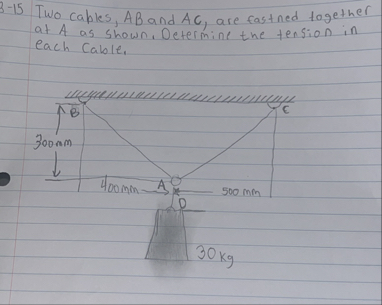 3-15 Two cables, AB and AC, are fastned together
at A as shown. Determine the tension in
each Cable.
B
C
300mm
400mm
A
500 mm
D
30kg